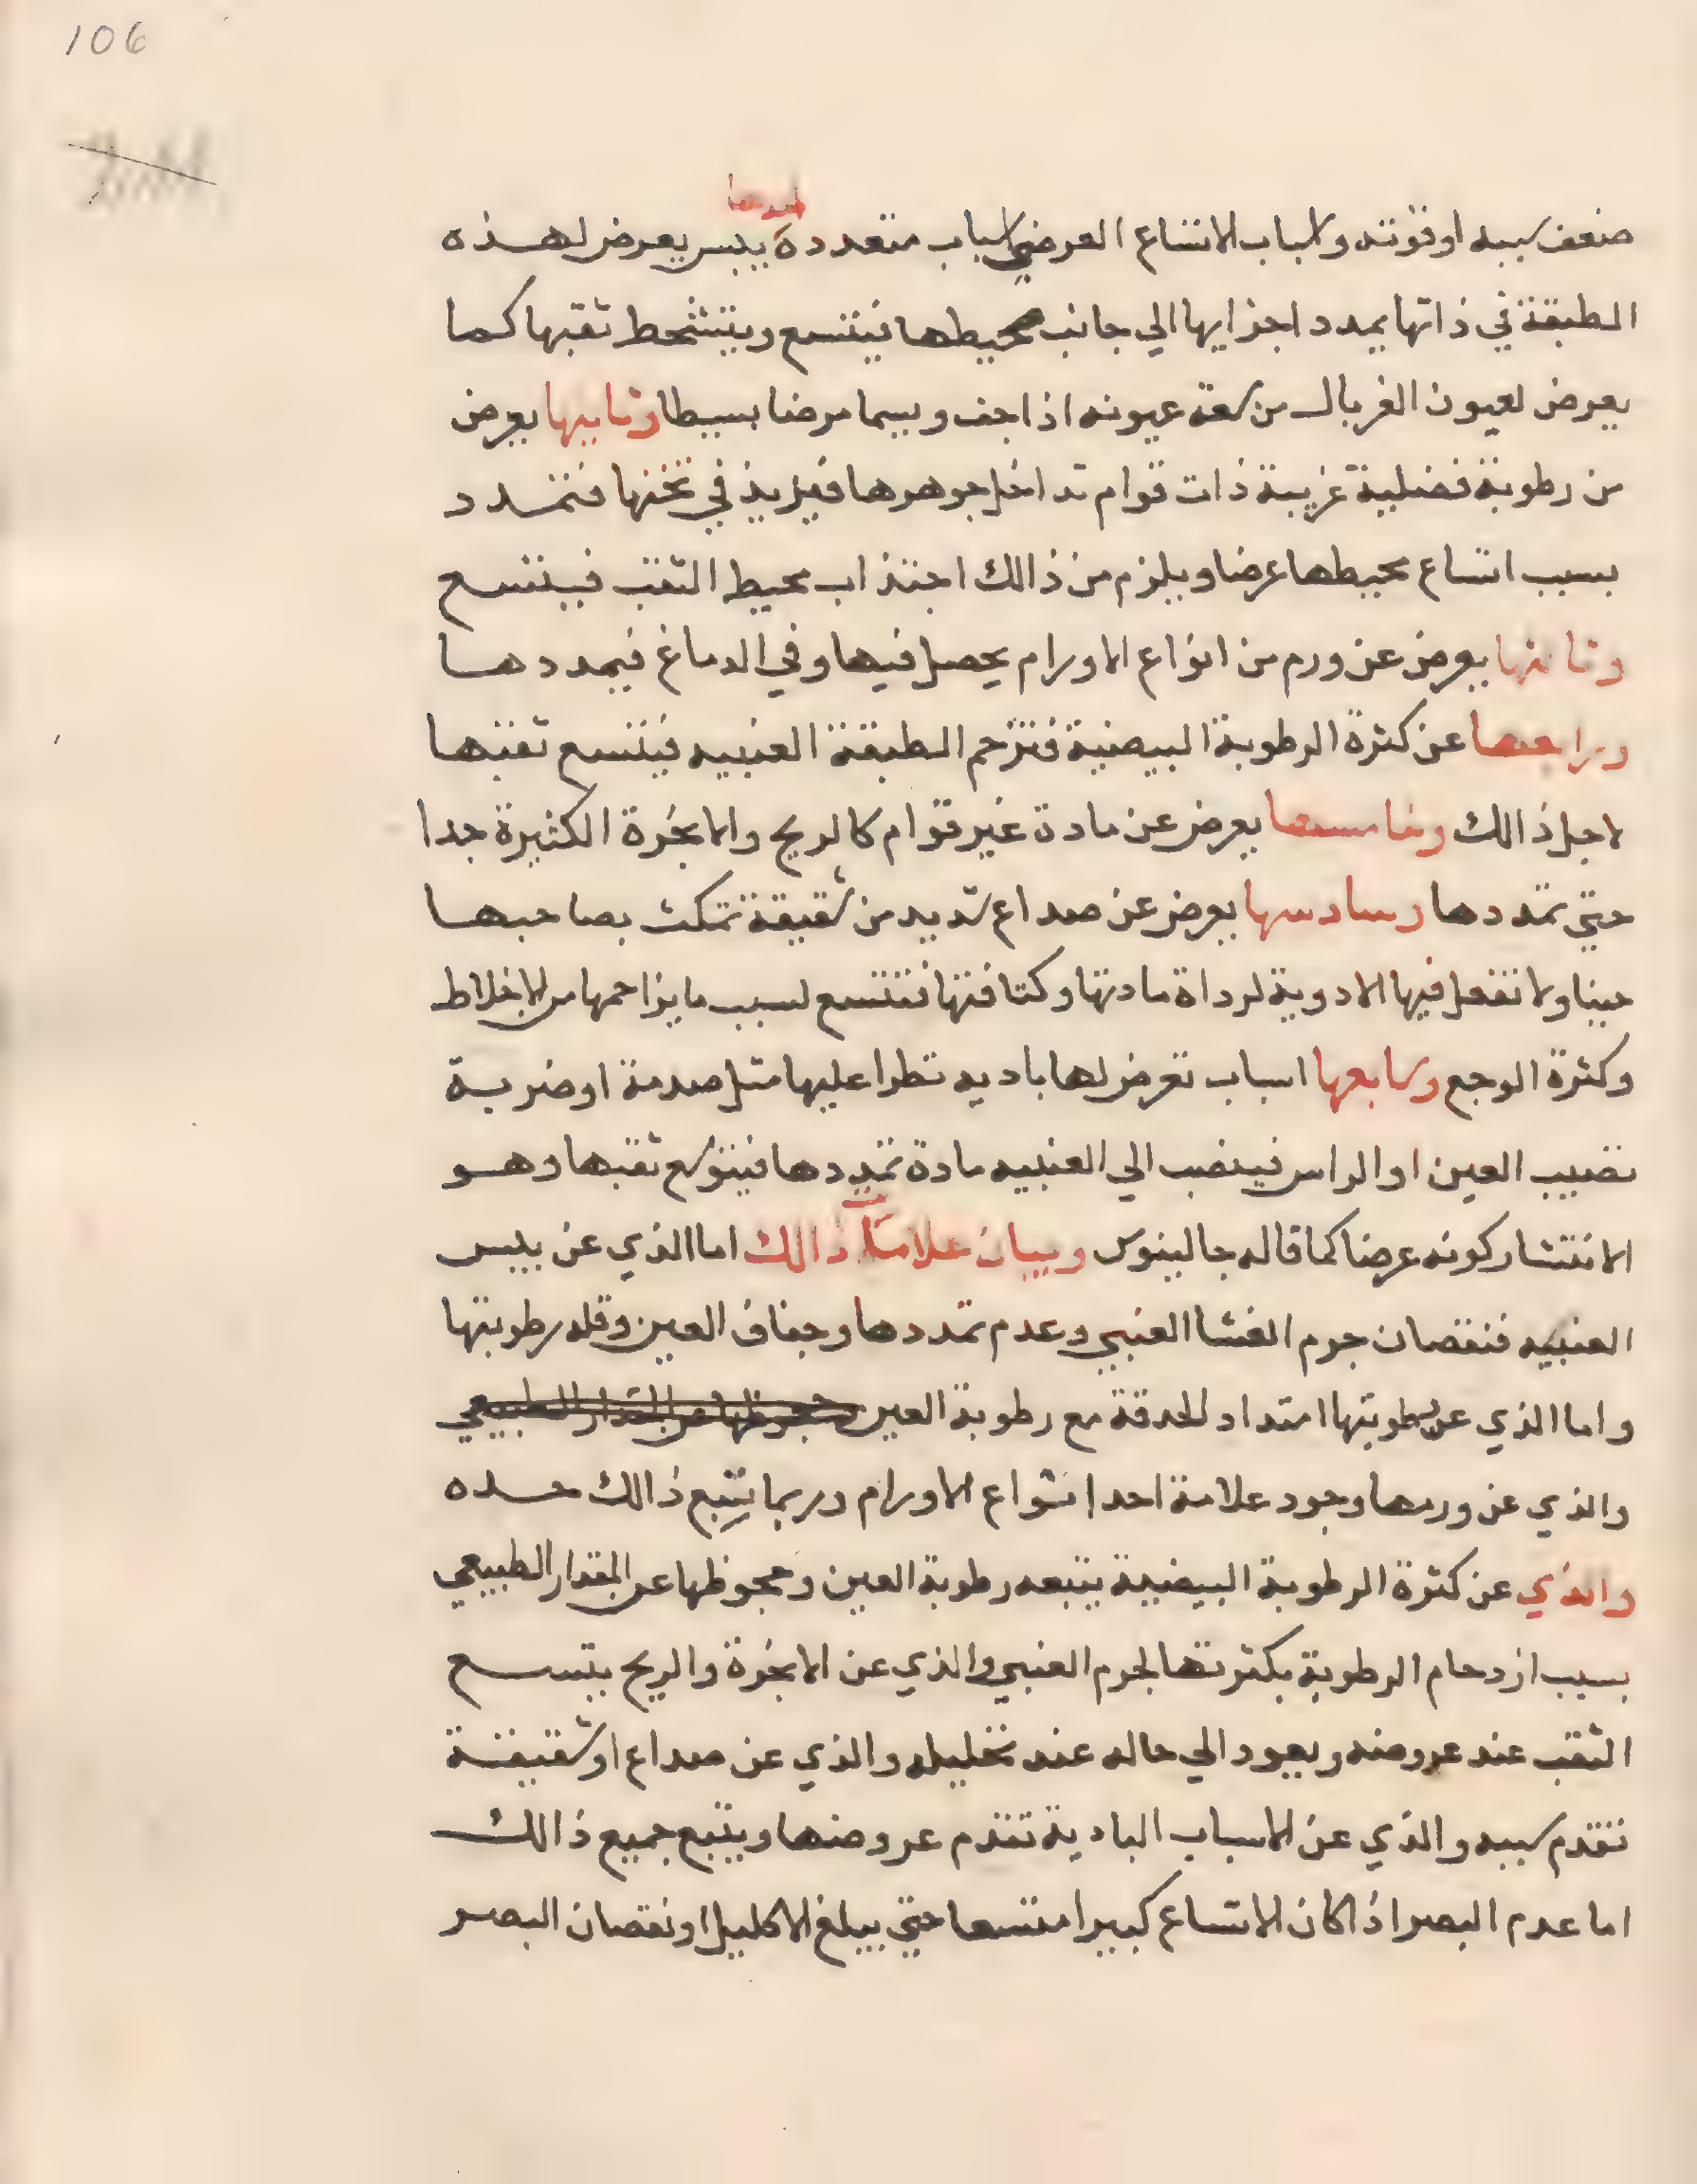 106
احدها
ضعف سببه او قوته واسباب الاتساع العرضي اسباب متعددة يبس يعرض لهذه
الطبقة في ذاتها يمدد اجزايها الي جانب محيطها فيتسع ويتشحط ثقبها كما
يعرض لعيون الغربال من سعة عيونه اذا جف ويسما مرضا بسيطا وثانيها يعرض
من رطوبة فضلية غريبة ذات قوام تداخل جوهرها فيزيد في ثخنها فتمدد
بسبب اتساع محيطها عرضا ويلزم من ذالك اجتذاب محيط الثقب فيتسع
وثالثها يعرض عن ورم من انواع الاورام يحصل فيها وفي الدماغ فيمددها
ورابعها عن كثرة الرطوبة البيضية فتزحم الطبقة العنبيه فيتسع ثقبها
لاجل ذالك وخامسها يعرض عن مادة غير قوام كالريح والابخرة الكثيرة جدا
حتي تمددها وسادسها يعرض عن صداع شديد من شقيقة تمكث بصاحبها
حينا ولا تفعل فيها الادوية لرداة مادتها وكثافتها فتتسع لسبب ما يزاحمها من الاخلاط
وكثرة الوجع وسابعها اسباب تعرض لها باديه تطرا عليها مثل صدمة او ضربة
تصيب العين او الراس فينصب الي العنبيه مادة تمددها فيتوسع ثقبها وهو
الانتشار كونه عرضا كما قاله جالينوس وبيان علامات ذالك اما الذي عن يبس
العنبيه فنقصان جرم الغشا العنبي وعدم تمددها وجفاف العين وقله رطوبتها
واما الذي عن رطوبتها امتداد للحدقة مع رطوبة العين وجحوظها عن المقدار الطبيعي
والذي عن ورمها وجود علامة احد انواع الاورام وربما تتبع ذالك حده
والذي عن كثرة الرطوبة البيضية يتبعه رطوبة العين وجحوظها عن المقدار الطبيعي
بسبب ازدحام الرطوبة بكثرتها لجرم العنبي والذي عن الابخرة والريح يتسع
الثقب عند عروضه ويعود الي حاله عند تحليله والذي عن صداع او شقيقة
تقدم سببه والذي عن الاسباب البادية تقدم عروضها ويتبع جميع ذالك
اما عدم البصر اذا كان الاتساع كبيرا متسعا حتي يبلغ الاكليل او نقصان البصر